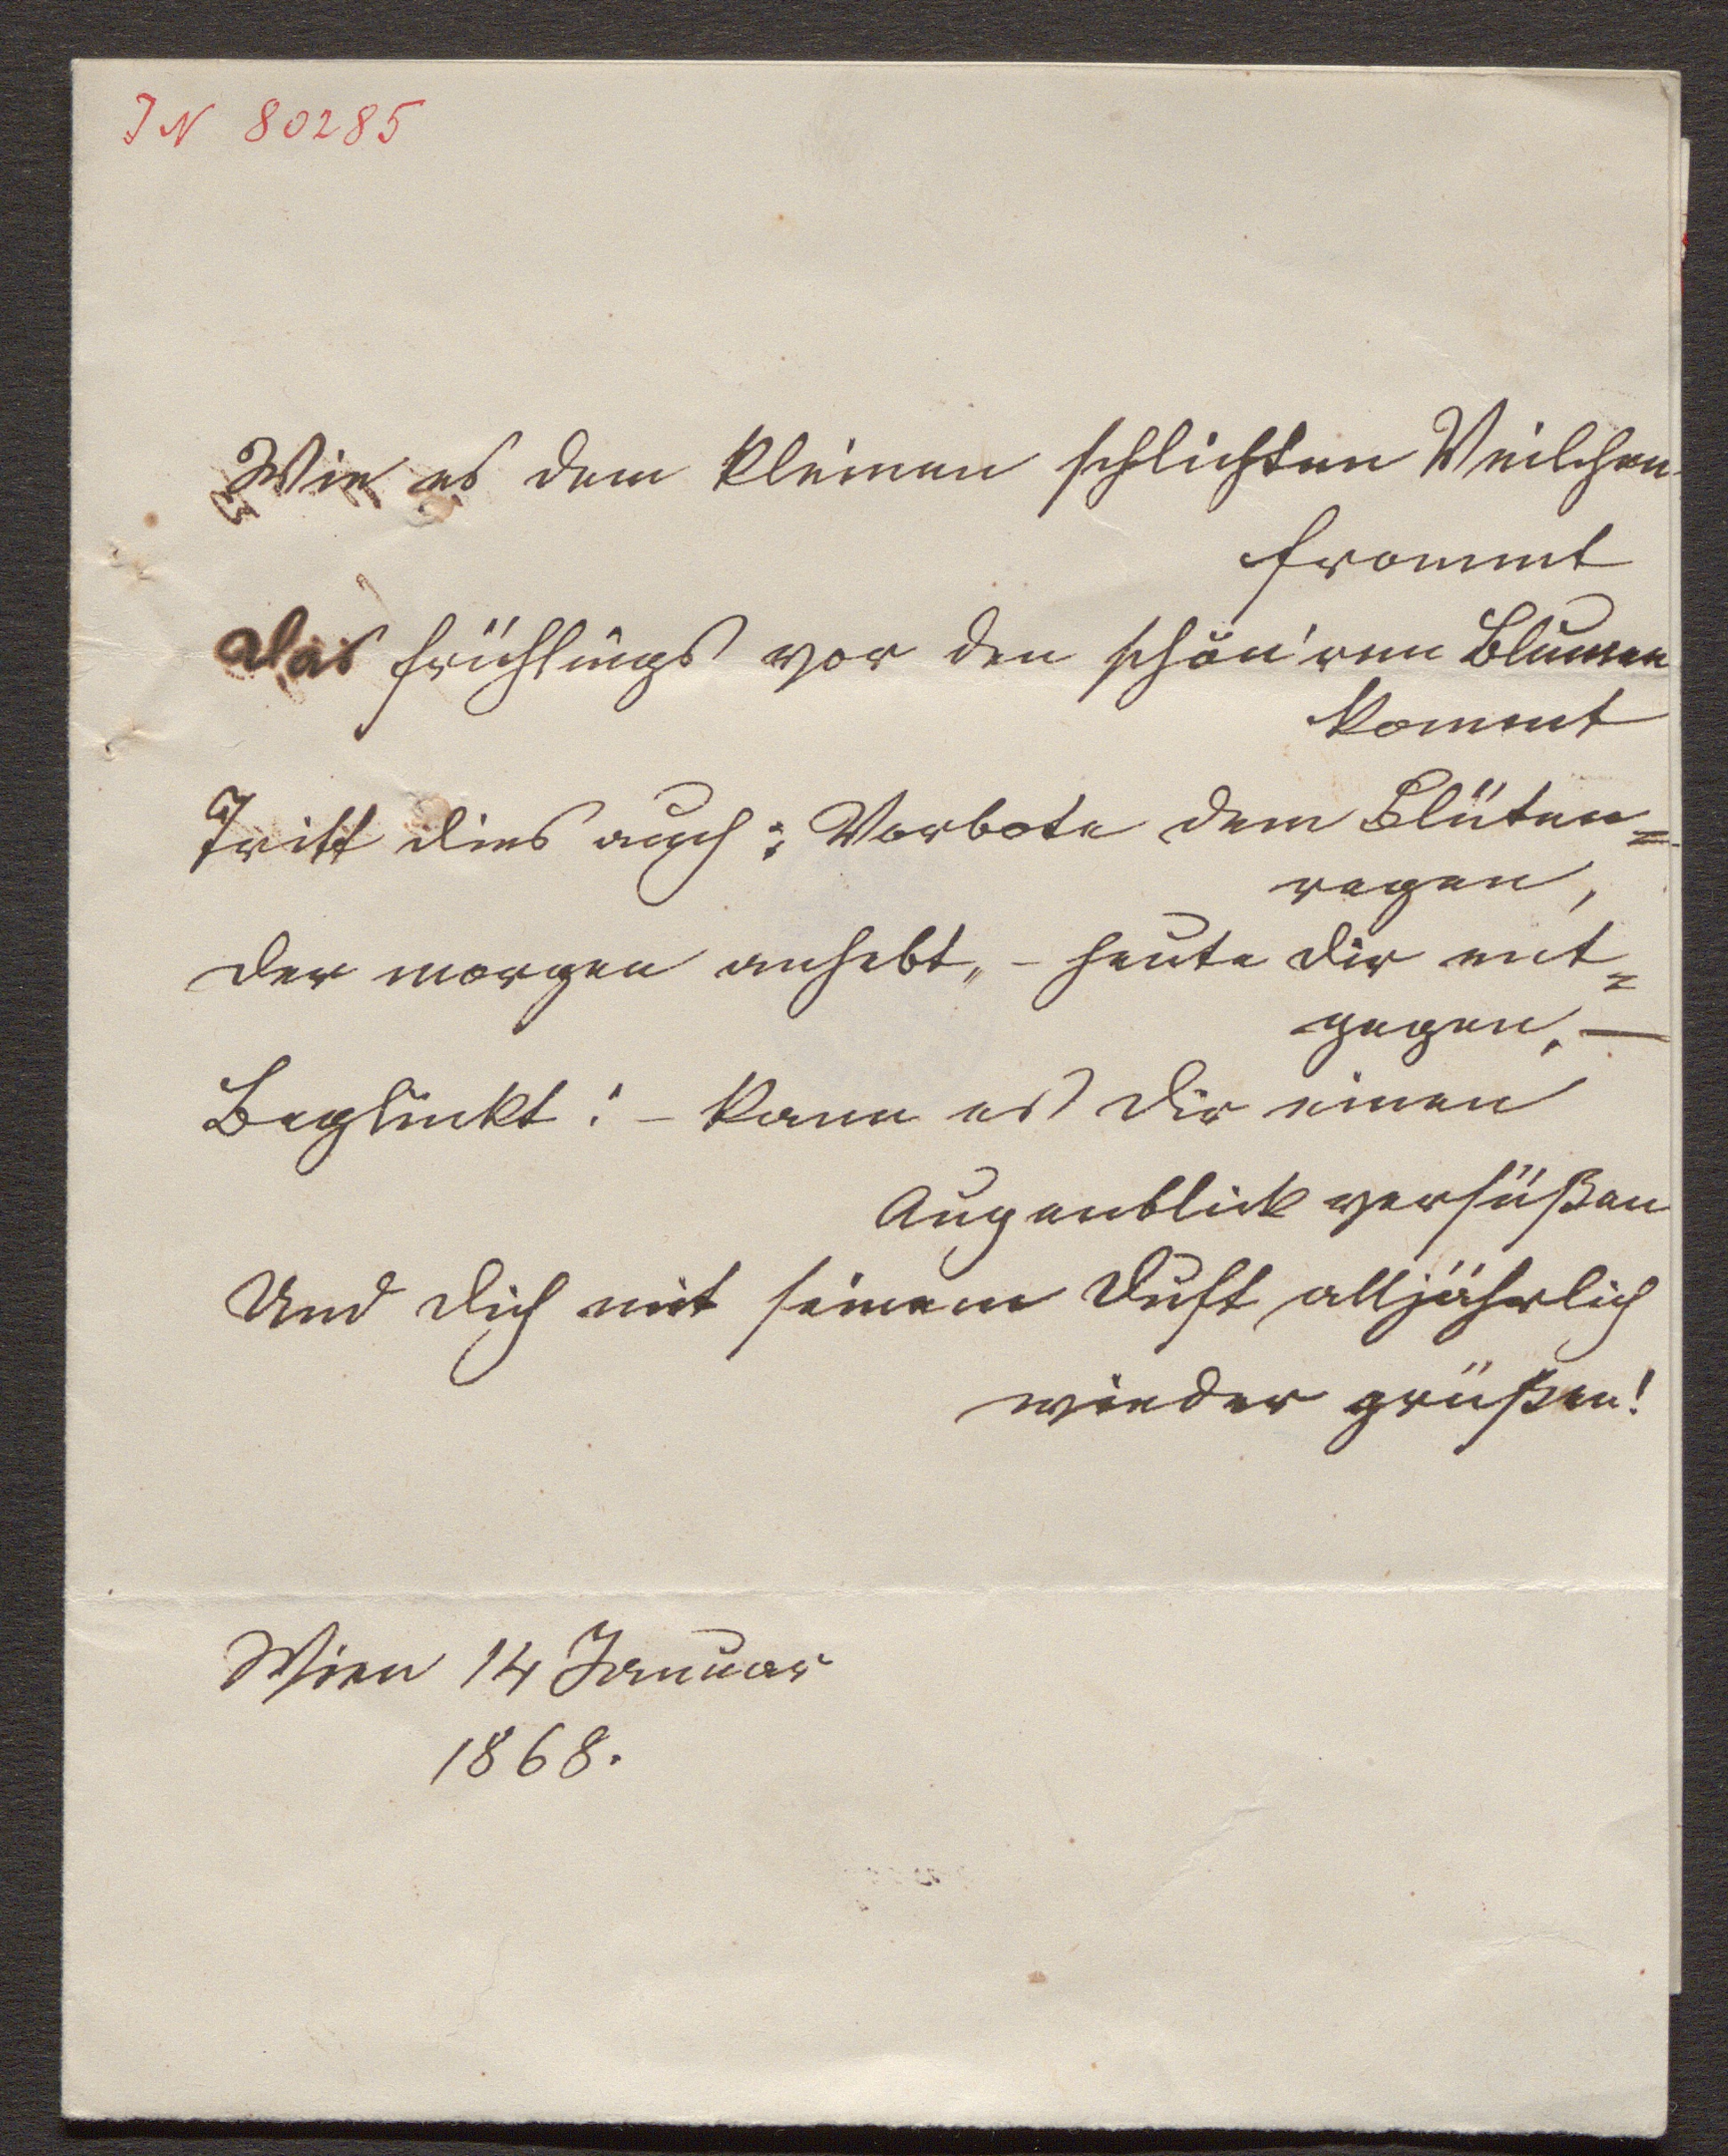 IN 80285
Wie es dem kleinen schlichten Veilchen
frommt
Das frühlings vor den schön'ren Blumen
kommt
Tritt dies auch: Vorbote dem Blüten=
regen,
der morgen anhebt, – heute dir ent=
gegen, —
Beglückt! – kann es dir einen
Augenblick versüßen
Und dich mit seinem Duft alljährlich
wieder grüßen!
Wien 14 Januar
1868.